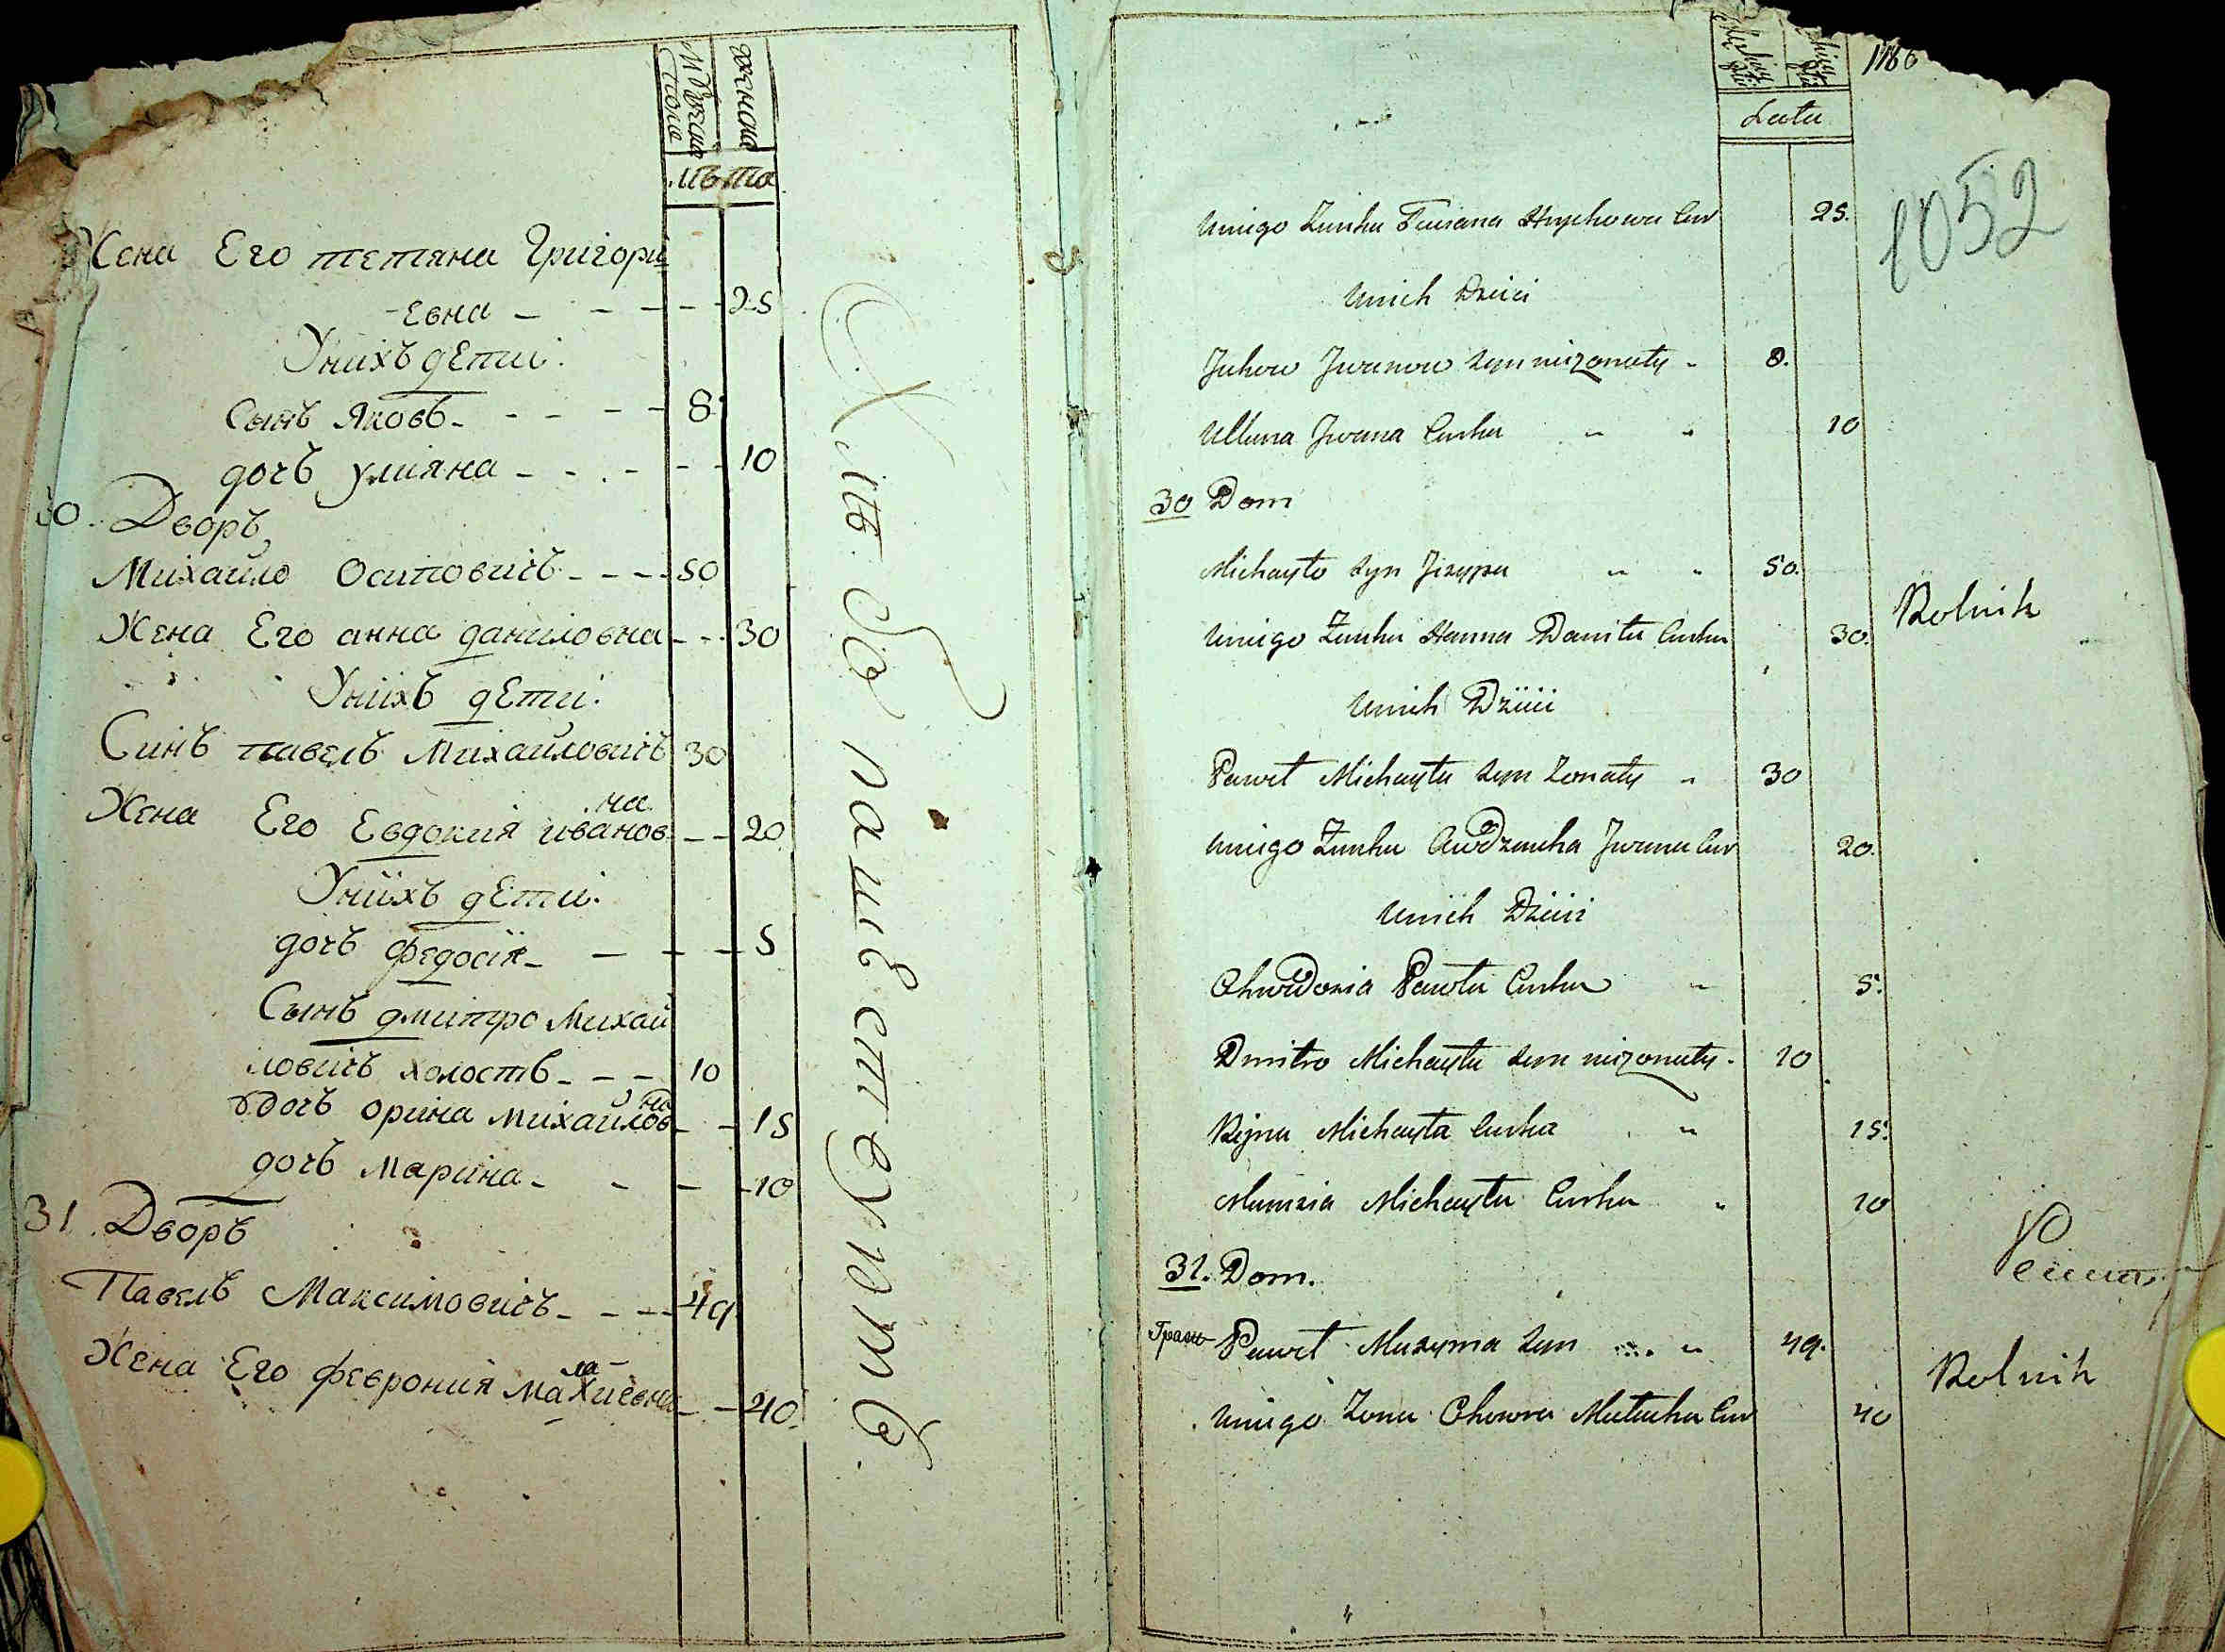 Мужеска
пола
женска
лѣта
Жена Его тетяна Григори
-евна - - - - 25
Унихъ дети:
Сынъ Яковъ - - - - 8
дочъ улияна - - - - 10
30. Дворъ
Михайло Осиповичъ - - - 50
Жена Его анна даниловна - - 30
Унихъ дети:
Синъ павелъ Михайловичъ 30
Жена Его Евдокия иванов на - - 20
Унихъ дети:
дочъ федосія - - - - 5
Сынъ дмитро Михай
ловичъ холостъ - - - 10
дочъ орина михайлов на - - 15
дочъ Марина - - - - 10
31. Дворъ
Павелъ Максимовичъ - - - 49
Жена Его феврония - - 40
Хлѣбопашествуютъ
1186
Lata
1052
Uniego Zonka Taciana 25.
Unich Dzieci
Jakow Jwanow syn nieżonaty 8.
Ullana Jwana Curka 10
30 Dom
Michayło syn Jezypa 50.
Unigo Zonka Hanna Daniła Curka 30.
Rolnik
Unich Dzieci
Paweł Michayła syn Zonaty 30
Unigo Zonka Jwana Cur 20.
Unich Dzieci
Chwedosia Pawła Curka 5.
Dmitro Michayła syn nieżonaty 10
Michayła Curka 15.
Michayła Curka 10
31. Dom.
Paweł syn 49.
Rolnik
Unigo Zona Cur 40